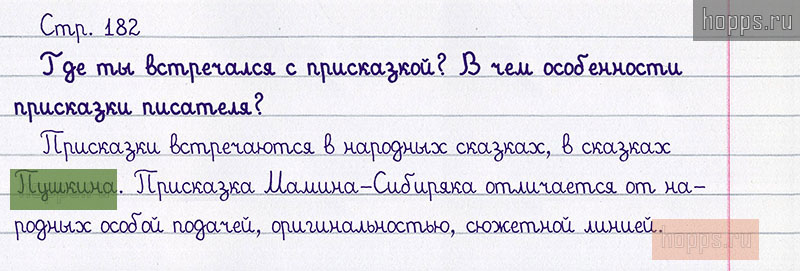 Стр. 182
hopps.ru
Где ты встречался с присказкой? В чем особенности
присказки писателя?
Присказки встречаются в народных сказках, в сказках
Пушкина. Присказка Мамина-Сибиряка отличается от на-
родных особой подачей, оригинальностью, сюжетной линией.
hopps.ru